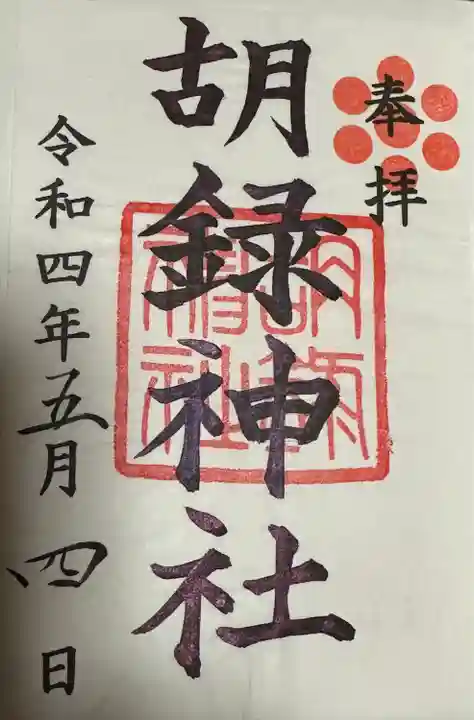 奉拝
胡録神社
胡録神社
令和四年五月四日